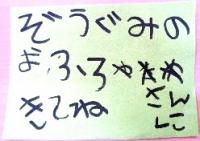 ぞうぐみの
おふろやさん
きてね